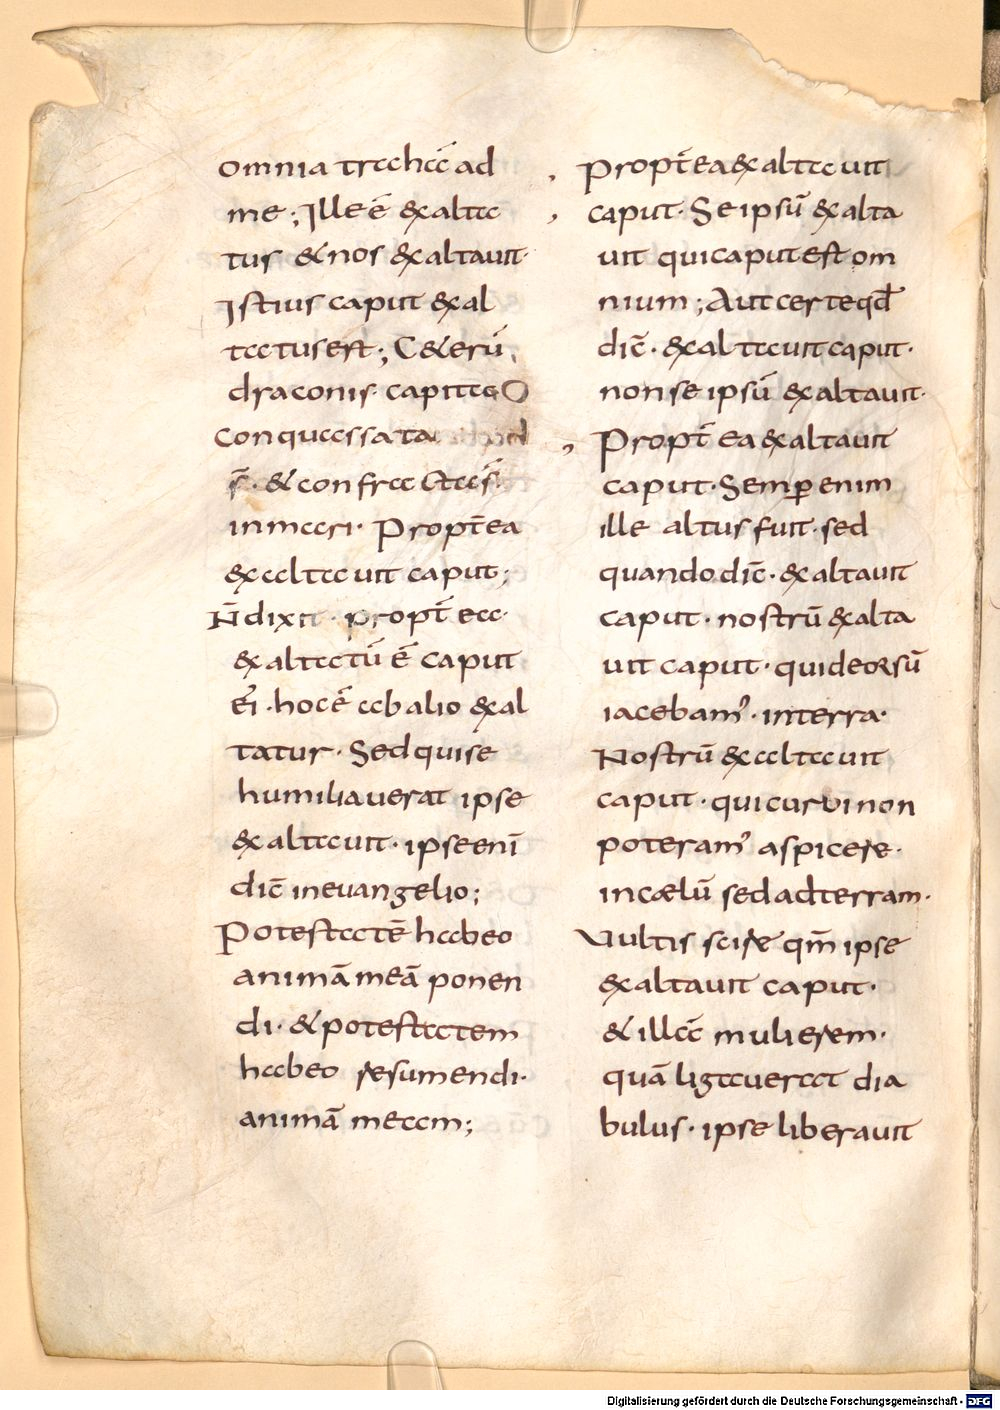 omnia trahā ad
me ; Ille ē & exalta
tus & nos exaltauit·
Istius caput exal
tatus est ; Ceterū
draconis· capita
conquassata
s̄· & confractas̄·
in mari· Propt̄ea
exaltauit caput ;
N̄ dixit· propt̄ ea·
exaltatū ē caput
ei᷒· hoc ē ab alio exal
tatur· Sed qui se
humiliauerat ipse
exaltauit· ipse enī
dic̄ in euangelio ;
Potestatē habeo
animā meā ponen
di· & potestatem
habeo resumendi·
animā meam ;
Propt̄ea exaltauit
caput· Se ipsū exalta
uit qui caput est om
nium ; Aut certe qd̄
dic̄· exaltauit caput·
non se ipsū exaltauit·
Propt̄ ea exaltauit
caput· Semꝑ enim
ille altus fuit· sed
quando dic̄· exaltauit
caput· nostrū exalta
uit caput· qui deorsū
iacebam᷒· in terra·
Nostrū exaltauit
caput· qui curui non
poteram᷒ aspicere·
in cælū sed ad terram·
Uultis scire qm̄ ipse
exaltauit caput·
& illā mulierem·
quā ligauerat dia
bulus· ipse liberauit
Digitalisierung gefördert durch die Deutsche Forschungsgemeinschaft - DFG